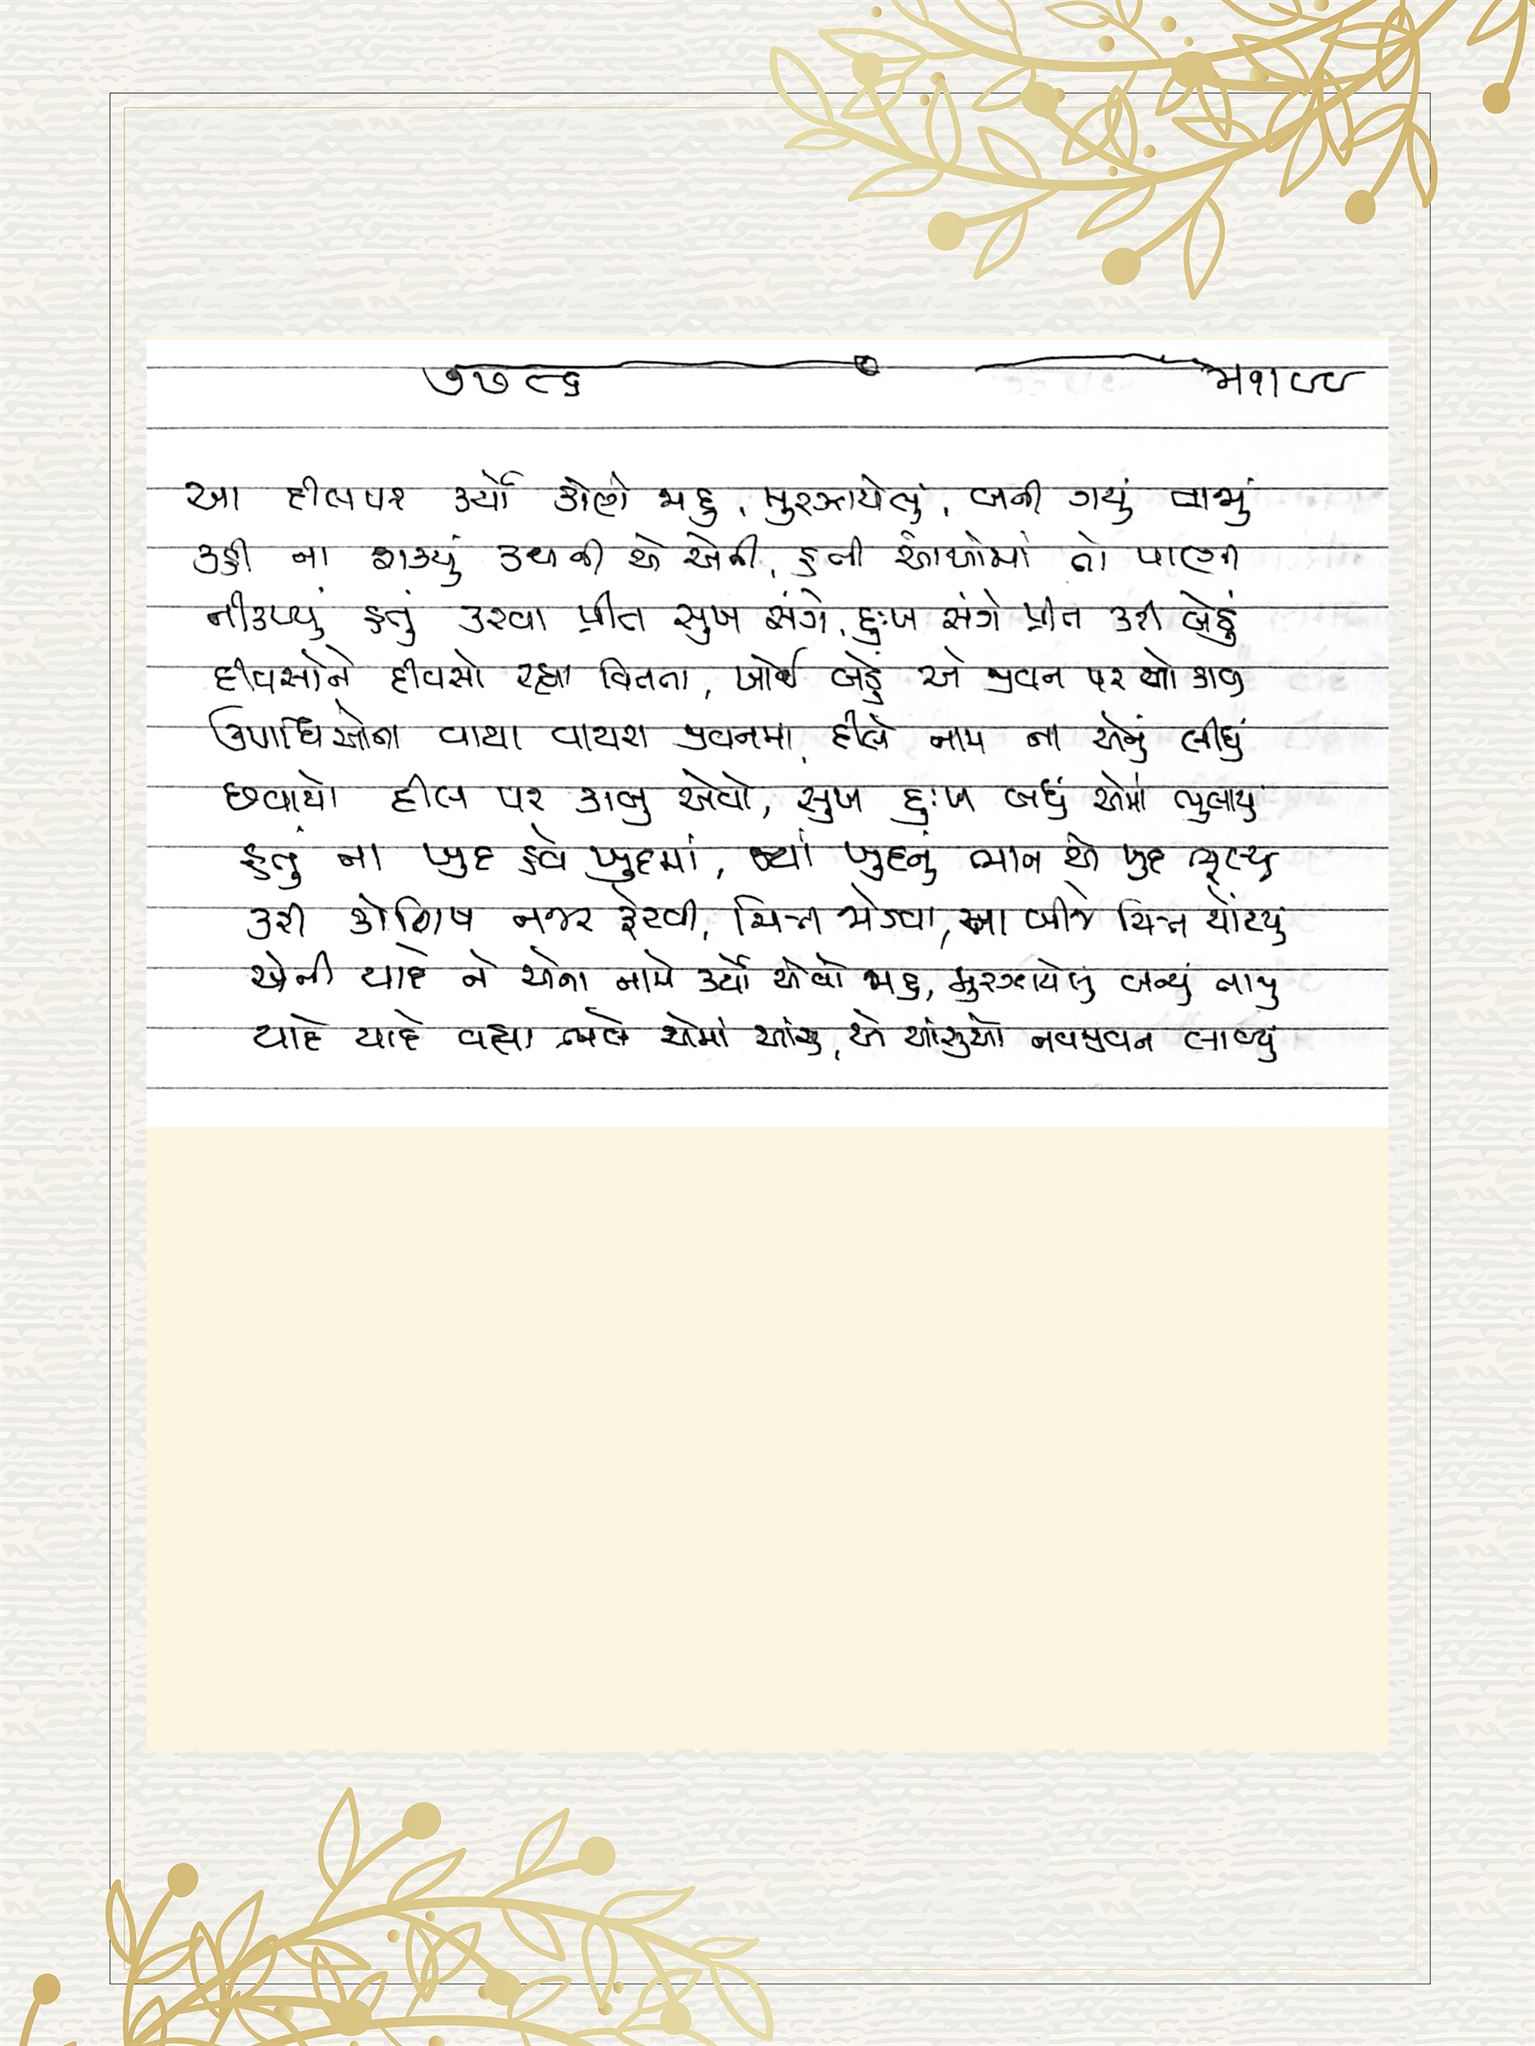 ૭૭૯૬
આ દીલપર કર્યો કોણે જાદુ, મુરઝાયેલું, બની ગયું તાજું
કરી ના શક્યું કથની એ એની, હતી આંખોમાં તો પાણી
નીકળ્યું હતું કરવા પ્રીત સુખ સંગે, દુઃખ સંગે પ્રીત કરી બેઠું
દીવસોને દીવસો રહ્યા વિતતા, ખોઈ બેઠું એ જીવન પર તો કાબુ
ઉપાધિઓના વાયા વાયરા જીવનમાં, દીલે નામ ના એનું લીધું
છવાયો દીલ પર કાબુ એવો, સુખ દુઃખ બધું એમાં ભુલાયું
હતું ના ખુદ હવે ખુદમાં, જ્યાં ખુદનું ભાન એ ખુદ ભૂલ્યું
કરી કોશિષ નજર ફેરવી, ચિત્ત જોડવા, ના બીજે ચિત્ત ચોંટ્યું
એની યાદે ને એના નામે કર્યો એવો જાદુ, મુરઝાયેલું બન્યું તાજું
યાદે યાદે વહ્યા ભલે એમાં આંસુ, એ આંસુઓ નવજીવન લાવ્યું